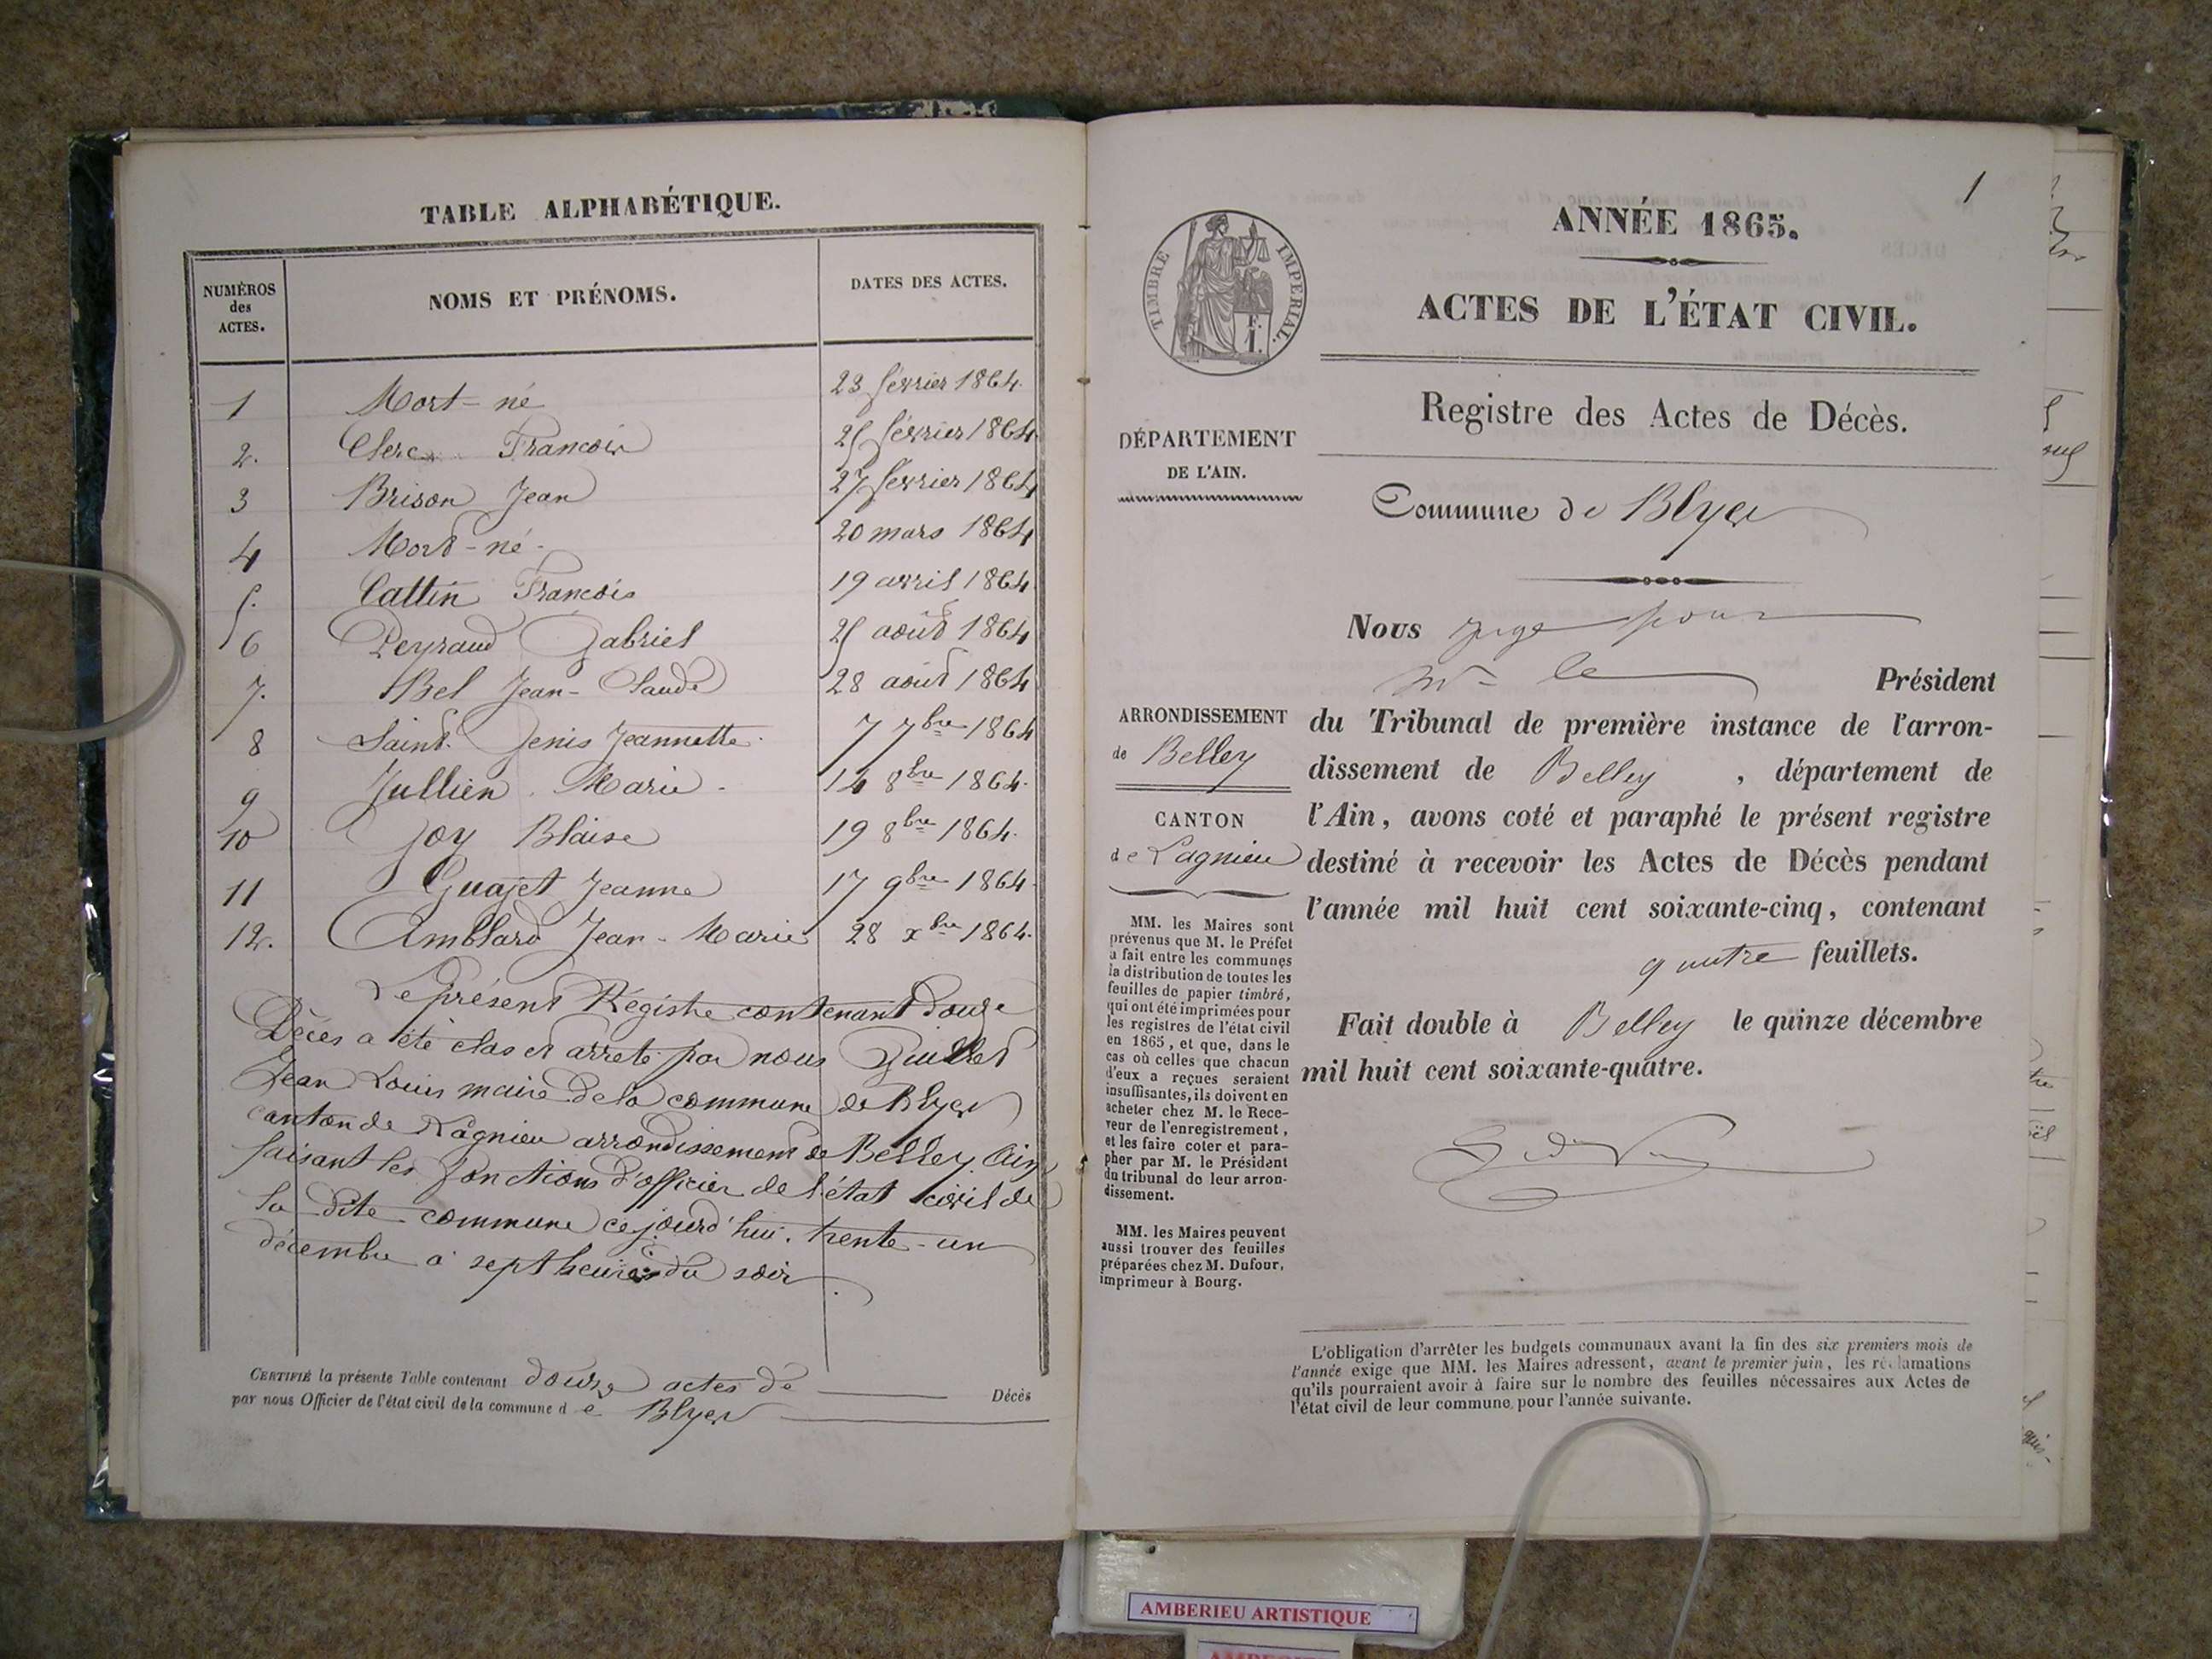 TABLE ALPHABÉTIQUE.
NUMÉROS des ACTES. NOMS ET PRÉNOMS. DATES DES ACTES.
1 Mort-né 23 février 1864
2. Clerc François 25 février 1864
3 Brison Jean 27 février 1864
4 Mort-né 20 mars 1864
5. Cattin François 19 avril 1864
6 Peyraud Gabriel 25 août 1864
7. Bel Jean-Claude 28 août 1864
8 Saint Genis Jeannette 7 7bre 1864
9 Jullien Marie 14 8bre 1864
10 Joy Blaise 19 8bre 1864
11 Guajet Jeanne 17 9bre 1864
12. Amblard Jean-Marie 28 xbre 1864
Le présent Régistre contenant douze
Décès a été clos et arrêté par nous Guillet
Jean Louis maire de la commune de Blyes
canton de Lagnieu arrondissement de Belley Ain
faisant les fonctions d'officier de l'état civil de
la dite commune cejourd'hui trente-un
décembre à sept heures du soir
CERTIFIÉ la présente Table contenant douze actes de Décès
par nous Officier de l'état civil de la commune de Blyes
1
TIMBRE IMPERIAL.
F.
1.
ANNÉE 1865.
ACTES DE L'ÉTAT CIVIL.
Registre des Actes de Décès.
DÉPARTEMENT
DE L'AIN.
Commune de Blyes
Nous juge pour
Mr le Président
ARRONDISSEMENT
de Belley
CANTON
de Lagnieu
du Tribunal de première instance de l'arron-
dissement de Belley, département de
l'Ain, avons coté et paraphé le présent registre
destiné à recevoir les Actes de Décès pendant
l'année mil huit cent soixante-cinq, contenant
quatre feuillets.
Fait double à Belley le quinze décembre
mil huit cent soixante-quatre.
MM. les Maires sont
prévenus que M. le Préfet
a fait entre les communes
la distribution de toutes les
feuilles de papier timbré,
qui ont été imprimées pour
les registres de l'état civil
en 1865, et que, dans le
cas où celles que chacun
d'eux a reçues seraient
insuffisantes, ils doivent en
acheter chez M. le Rece-
veur de l'enregistrement,
et les faire coter et para-
pher par M. le Président
du tribunal de leur arron-
dissement.
MM. les Maires peuvent
aussi trouver des feuilles
préparées chez M. Dufour,
imprimeur à Bourg.
L'obligation d'arrêter les budgets communaux avant la fin des six premiers mois de
l'année exige que MM. les Maires adressent, avant le premier juin, les réclamations
qu'ils pourraient avoir à faire sur le nombre des feuilles nécessaires aux Actes de
l'état civil de leur commune pour l'année suivante.
AMBERIEU ARTISTIQUE